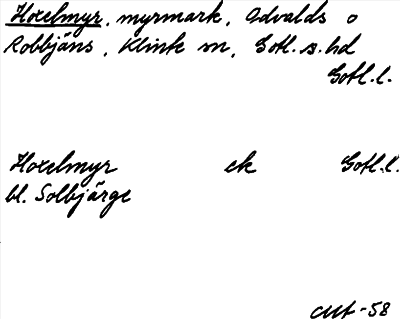 Hoxelmyr, myrmark, Odvalds o
Robbjäns, Klinte sn, Gotl. s. hd
Gotl. l.
Hoxelmyr ek Gotl. l.
bl. Solbjärge
-58